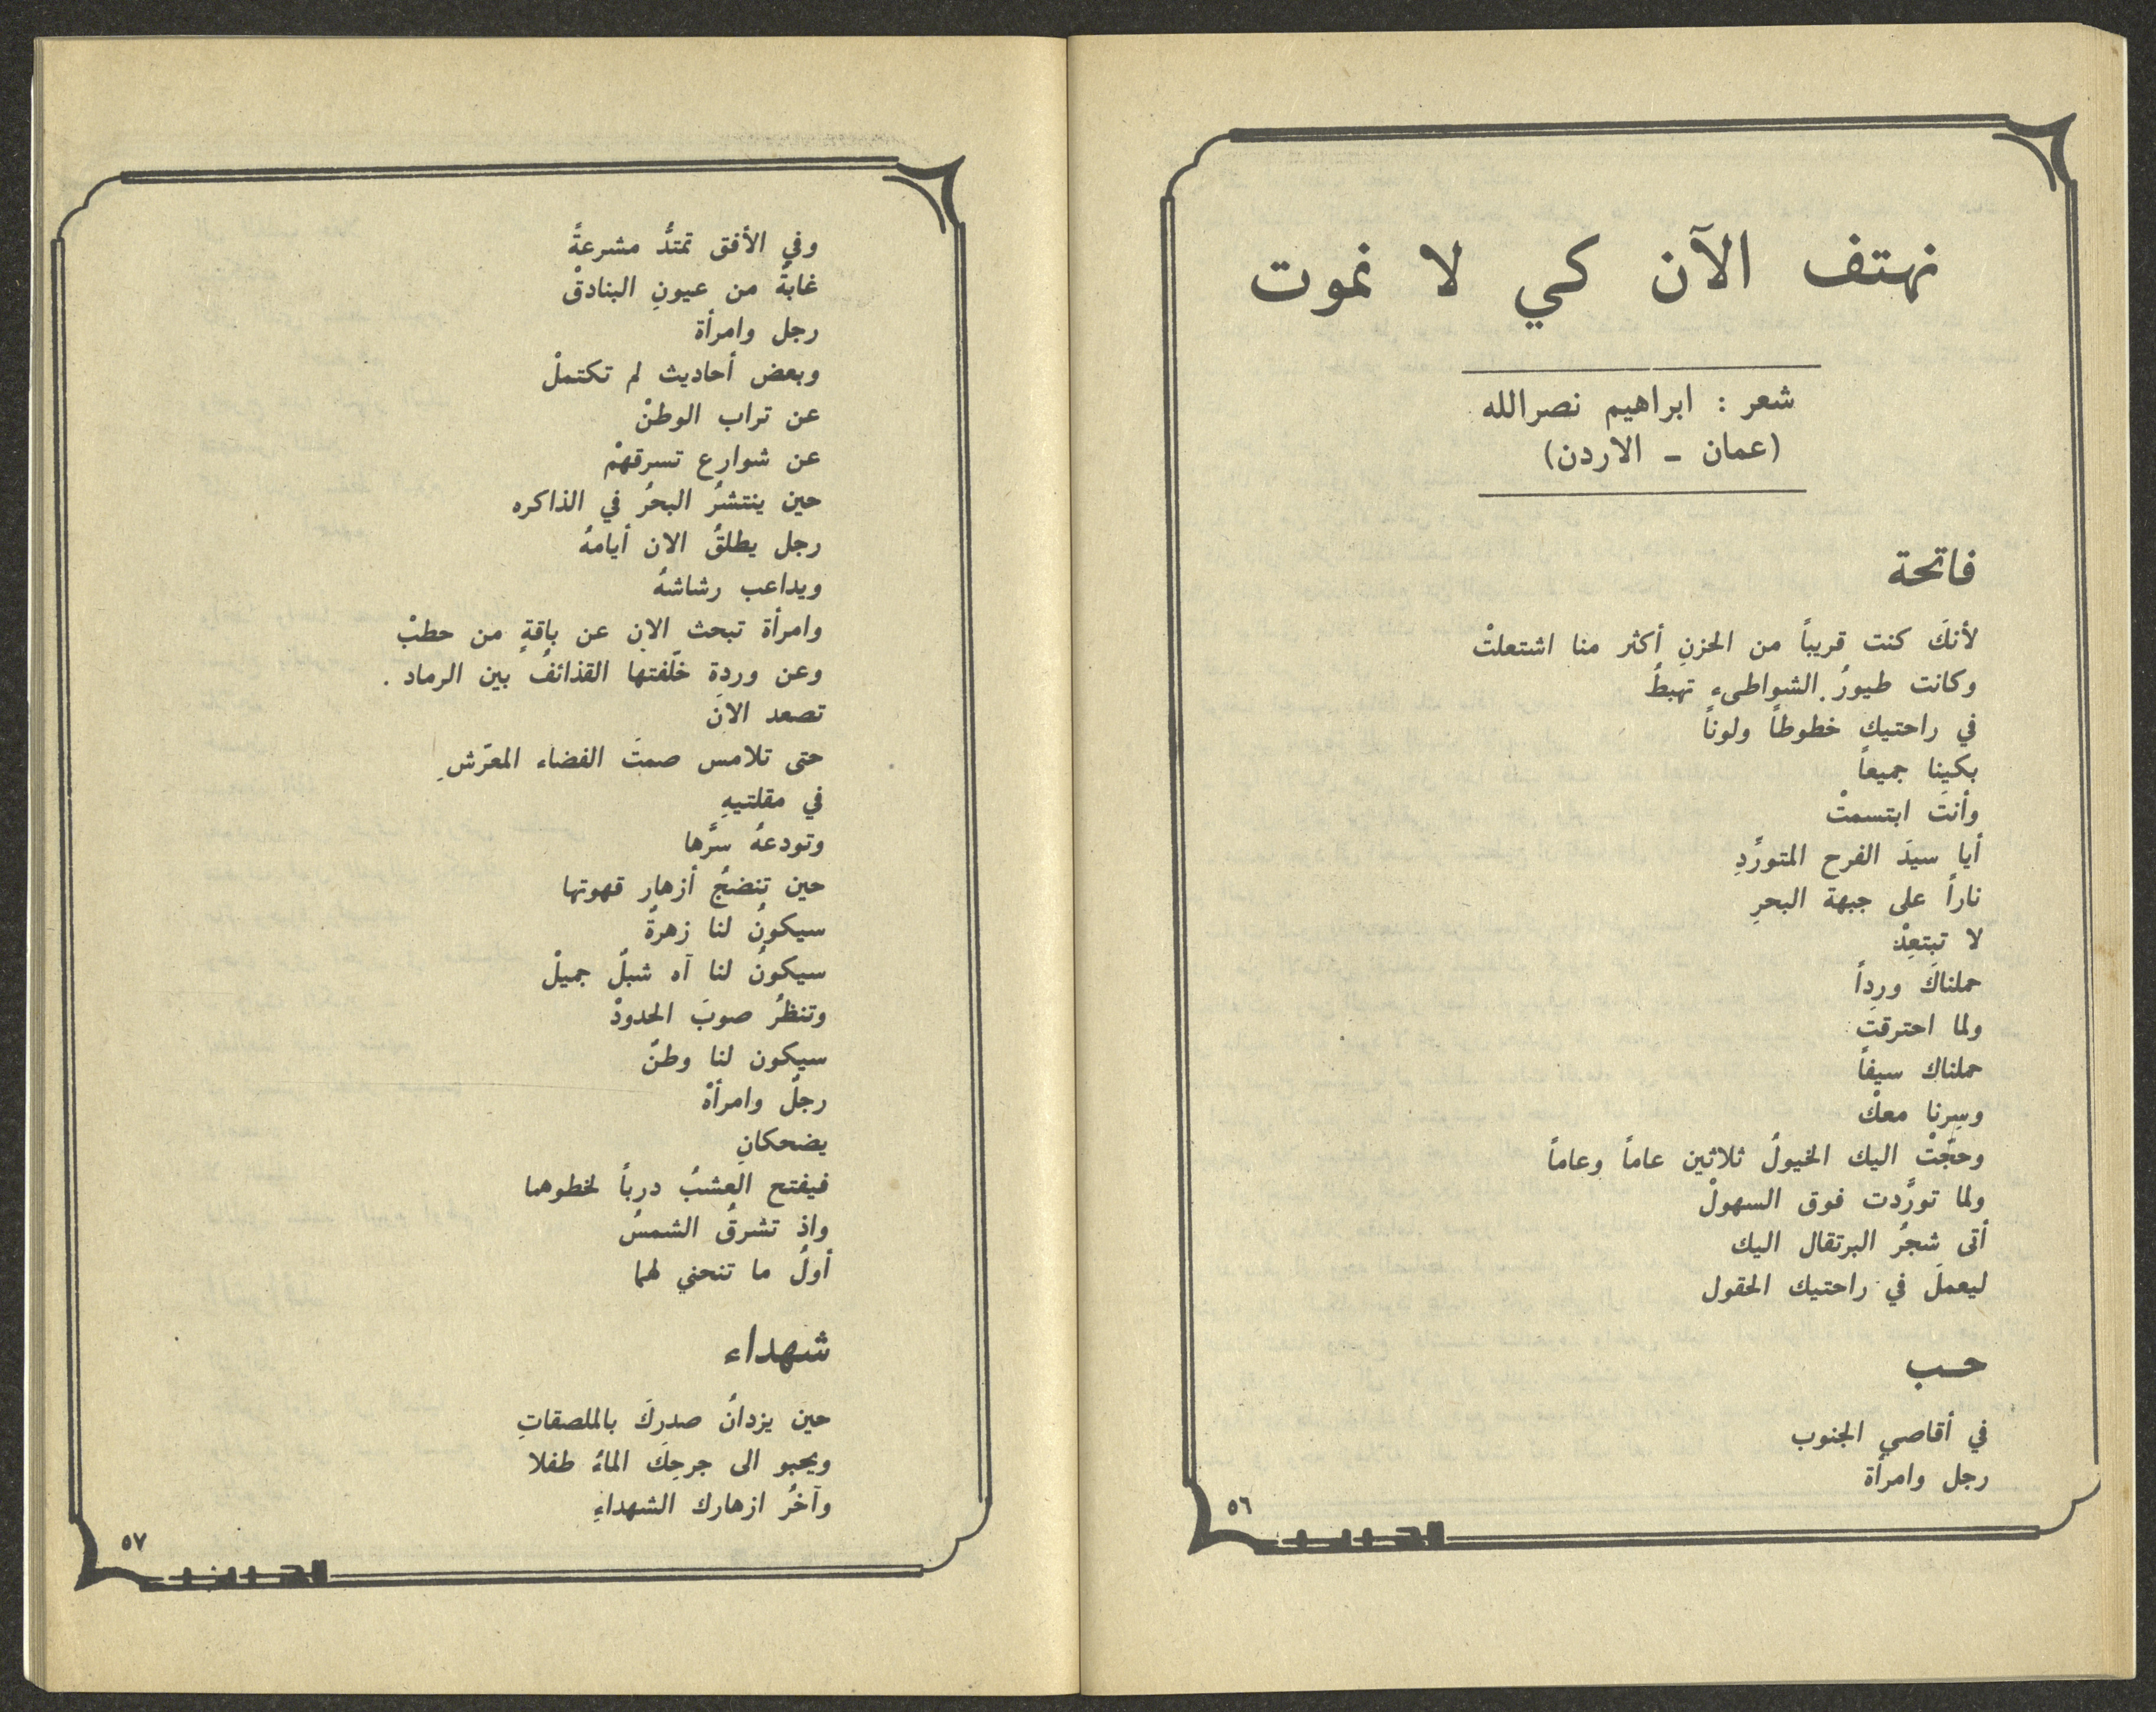 نهتف الآن كي لا نموت
شعر : ابراهيم نصرالله
(عمان ـ الاردن)
فاتحة
لأنكَ كنت قريباً من الحزنِ أكثر منا اشتعلتْ
وكانت طيورُ الشواطىء تهبطُ
في راحتيك خطوطاً ولوناً
بكينا جميعاً
وأنتَ ابتسمتْ
أيا سيدَ الفرح المتورَّدِ
ناراً على جبهة البحرِ
لا تبتعِدْ
حملناكَ ورداً
ولما احترقتَ
حملناك سيفاً
وسِرنا معكْ
وحجّتْ اليك الخيولُ ثلاثين عاماً وعاماً
ولما تورَّدت فوق السهولْ
أتى شجرُ البرتقال اليك
ليعملَ في راحتيك الحقول
حب
في أقاصي الجنوب
رجل وامرأة
٥٦
وفي الأفق تمتدُّ مشرعةً
غابةٌ من عيونِ البنادقْ
رجل وامرأة
وبعض أحاديث لم تكتملْ
عن تراب الوطنْ
عن شوارع تسرقهمْ
حين ينتشرُ البحرُ في الذاكره
رجل يطلقُ الان أيامهُ
ويداعب رشاشهُ
وامرأة تبحث الان عن باقةٍ من حطبْ
وعن وردة خلّفتها القذائفُ بين الرماد .
تصعد الانَ
حتى تلامس صمتَ الفضاء المعرّشِ
في مقلتيهِ
وتودعهُ سرَّها
حين تنضجُ أزهار قهوتها
سيكونُ لنا زهرةٌ
سيكونُ لنا آه شبلٌ جميلْ
وتنظرُ صوبَ الحدودْ
سيكون لنا وطنٌ
رجلٌ وامرأةْ
يضحكانِ
فيفتح العشبُ درباً لخطوهما
واذ تشرقُ الشمسُ
أولُ ما تنحني لهما
شهداء
حين يزدانُ صدركَ بالملصقاتِ
ويحبو الى جرحِكَ الماءُ طفلا
وآخرُ ازهارك الشهداءِ
٥٧